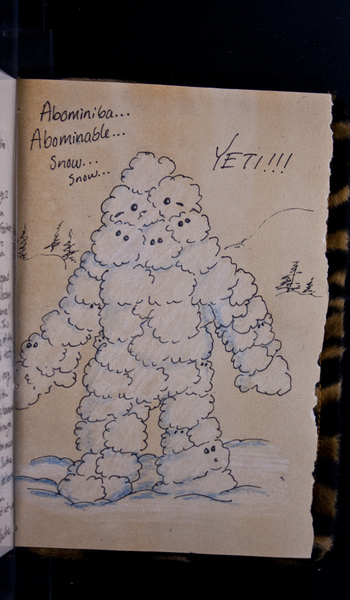 Abominiba...
Abominable...
Snow...
Snow...
YETI!!!